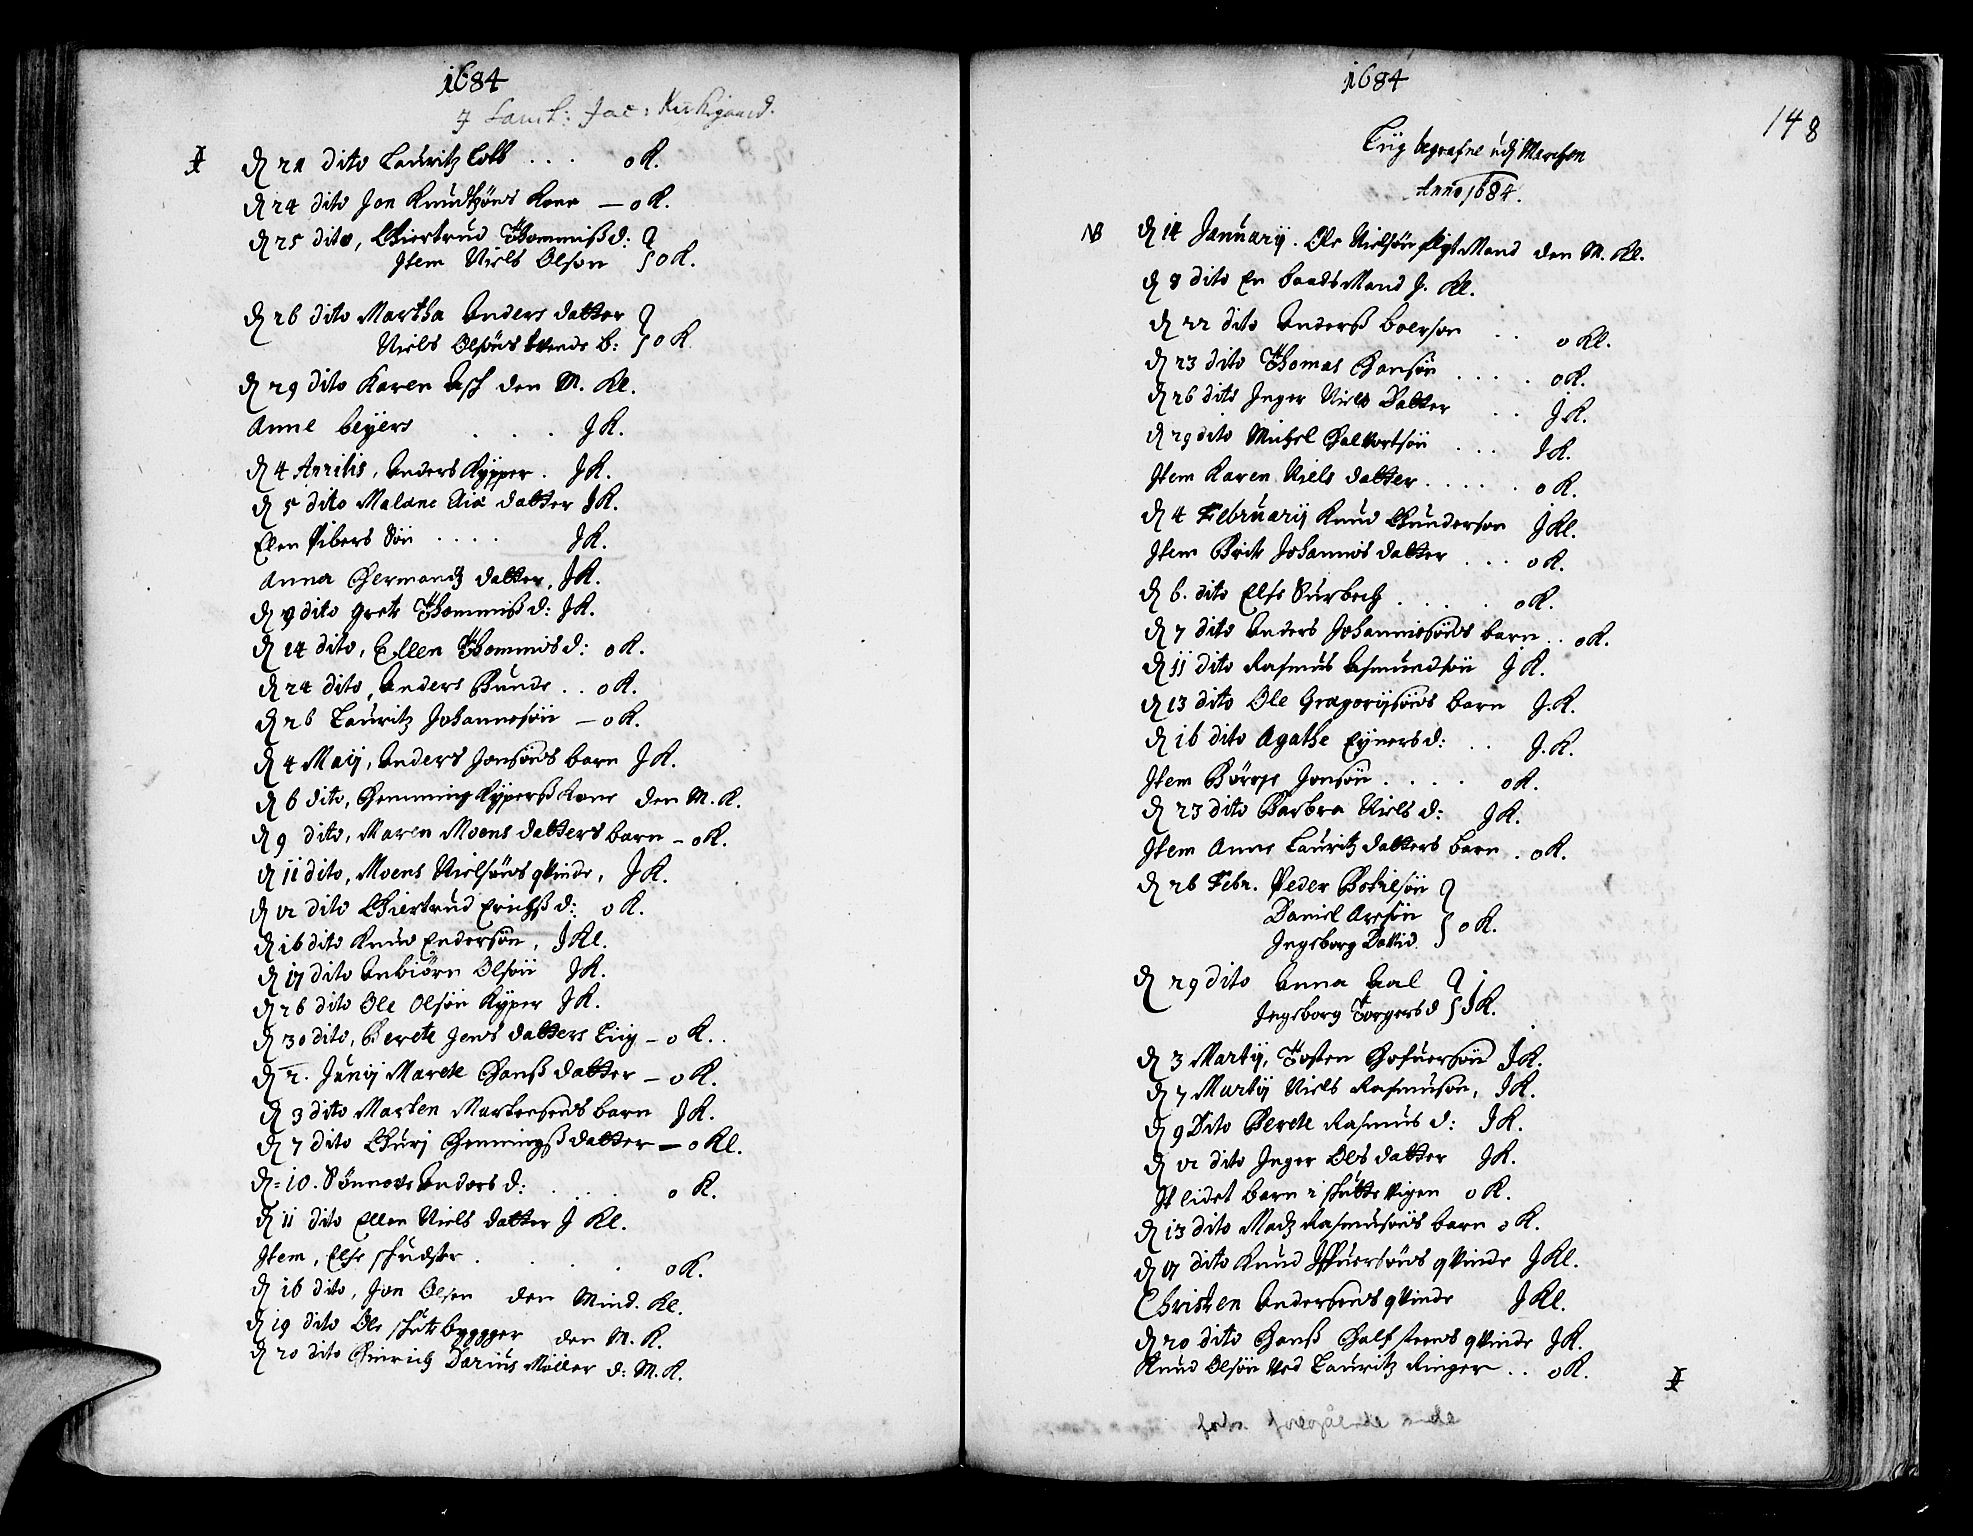 1684
J Sanct: Jac: Kirkigaard.
d 21 dito Lauritz Cold . . . o K.
d 24 dito Jon Knudtzöns Kone – o K.
d 25 dito, Giertrud Thommisß d:
Item Niels Olson o K.
d 26 dito Martha Anders datter
Niels Olsöns b: o K.
d 29 dito Karen Ask den M. Kl.
Anne beyers . . . J K.
d 4 Aprilis, Anders Kypper . J K.
d 5 dito Malane datter J K.
Elen Pibers Sön . . . . J K.
Anna Hermandz datter, J K.
d 9 dito Grete Thommisß d: J K.
d 14 dito, Ellen Thommis d: o K.
d 24 dito, Anders Bunde . . o K.
d 26 Lauritz Johannesön – o K.
d 4 Maij, Anders Jonsöns barn J K.
d 6 dito, Hemming Kyperß Kone den M. K.
d 9 dito, Maren Moens datters barn – o K.
d 11 dito, Moens Nielsöns qvinde, J K.
d 12 dito Giertrud Erichß d: o K.
d 16 dito Knud Endersön, J Kl.
d 17 dito Anbiörn Olsön J K.
d 26 dito Ole Olsön Kyper J K.
d 30 dito, Berete Jens datters Liig – o K. .
d 2. Junij Marete Hanß datter – o K.
d 3 dito Marten Martensens barn J K.
d 7 dito Guri Hemmingß datter – o Kl.
d 10. Sönneve Anders d: . . . . o K.
d 11 dito Ellen Niels datter J Kl.
Item, Else . . . . o K.
d 16 dito, Jon Olsen den Mind. Kl.
d 19 dito Ole Skutebyggger den M. K.
d 20 dito Hinrich Darius Möller d: M. K.
1684
148
Liig begrafne udj Marchen
Anno 1684.
NB d 14 Januarij. Ole Nielsön Mand den M. Kl.
d 8 dito En baads Mand J. Kl.
d 22 dito Anderß boerson . . o Kl.
d 23 dito Thomas Hansön . . . . o K.
d 26 dito Inger Niels Datter . . J K.
d 29 dito Michel Halvortsön . . . J K.
Item Karen Niels datter . . . . . o K.
d 4 Februarij Knud Gunderson J Kl.
Item Brite Johannis datter . . . o K.
d 6. dito Else Surbech . . . . o K.
d 7 dito Anders Johannisöns barn . . o K.
d 11 dito Rasmus Asmundsön J K.
d 13 dito Ole Gregorijsöns barn J. K.
d 16 dito Agathe Eyners d: . . J. K.
Item Börge Jonsön . . . . o K.
d 23 dito Barbra Niels d: J K.
Item Anne Lauritz datters barn . o K.
d 26 Febr. Peder Botelsön
Daniel Aresön o K.
Ingeborg David.
d 29 dito Anna Aal
Ingeborg Torgers d J K.
d 3 Martij, Tosten J K.
d 7 Martij Niels Rasmuson, J K.
d 9 Dito Berete Rasmus d: J K.
d 12 dito Inger Ols datter J K.
It lidet barn i Skuttevigen o K.
d 13 dito Madz Rasmusöns barn o K.
d 17 dito Knud qvinde J Kl.
Christen Andersens qvinde J Kl.
d 20 dito Hanß Halfsteens qvinde J K.
Knud Olsön ved Lauritz Ringer . . o K.
forts. foregående side